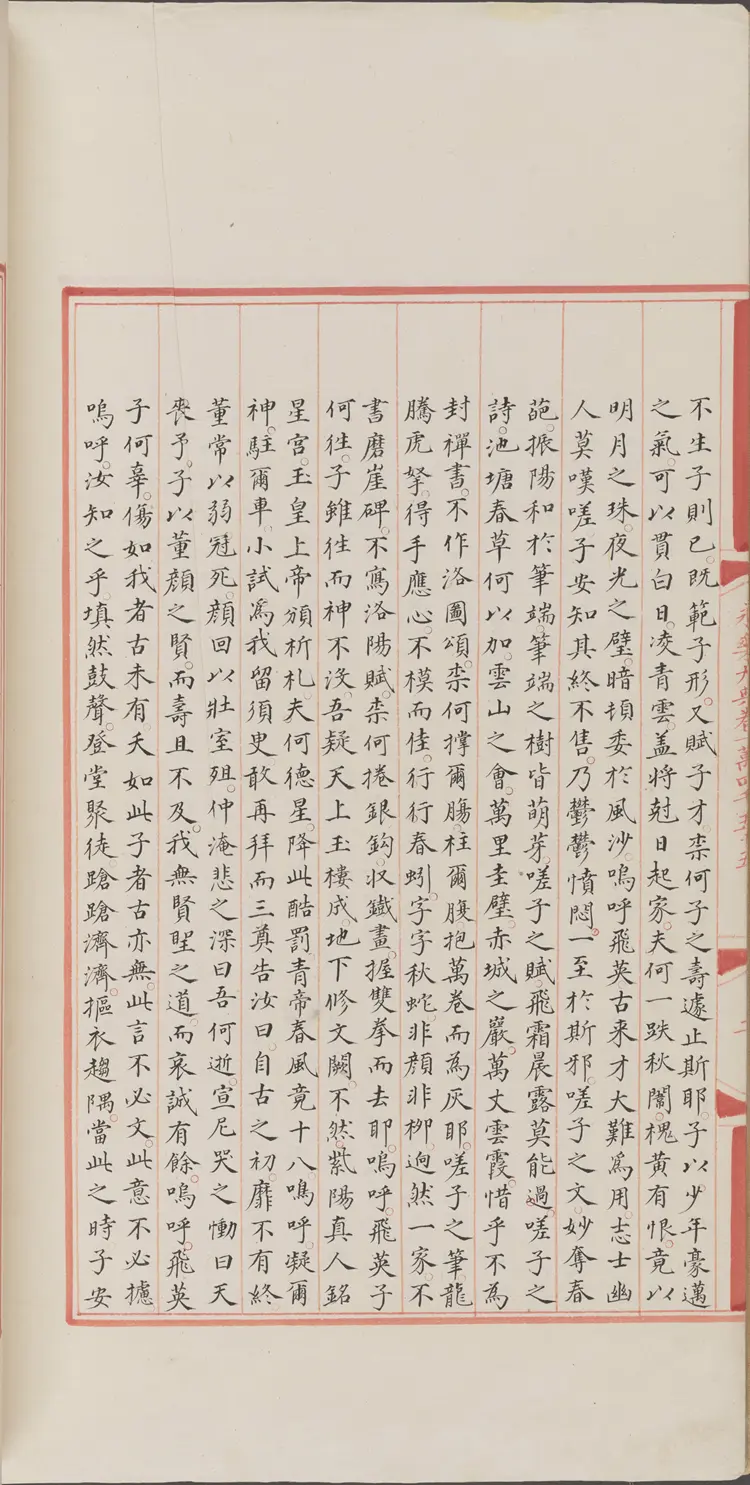 不生子則已。既範子形。又賦子才。柰何子之壽遽止斯耶。子以少年豪邁
之氣。可以貫白日。凌青雲。盖將尅日起家。夫何一跌秋闈。槐黄有恨。竟以
明月之珠。夜光之璧。暗投委於風沙。嗚呼飛英古来才大難為用。志士幽
人莫嘆嗟子安知其終不售。乃鬱鬱憤悶。一至於斯邪。嗟子之文。妙奪春
葩。振陽和於筆端筆端之樹皆萌芽。嗟子之賦。飛霜晨露莫能過。嗟子之
詩。池塘春草何以加。雲山之會。萬里圭璧。赤城之巖。萬丈雲霞。惜乎不為
封禪書。不作洛圖頌。柰何撑爾膓。柱爾腹抱萬卷而為灰耶。嗟子之筆。龍
騰虎拏。得手應心。不模而佳。行行春蚓。字字秋蛇。非顔非栁。逈然一家。不
書磨崖碑。不寫洛陽賦。柰何捲銀鈎。収鐵畫。握雙拳而去耶。嗚呼。飛英子
何徃。子雖徃而神不没。吾疑天上玉樓成。地下修文闕。不然。紫陽真人銘
星宫。玉皇上帝頒析札。夫何德星。降此酷罰青帝春風竟十八。嗚呼。凝爾
神。駐爾車。小試為我留須臾敢再拜而三奠告汝曰。自古之初。靡不有終
董常以弱冠死。顔回以壯室殂。仲淹悲之深曰吾何逝。宣尼哭之慟曰天
喪予。子以董顔之賢。而壽且不及。我無賢聖之道。而哀誠有餘。嗚呼。飛英
子何辜。傷如我者古未有。夭如此子者古亦無。此言不必文。此意不必攄
嗚呼。汝知之乎。填然鼓聲。登堂聚徒蹌蹌濟濟。摳衣趨隅。當此之時子安